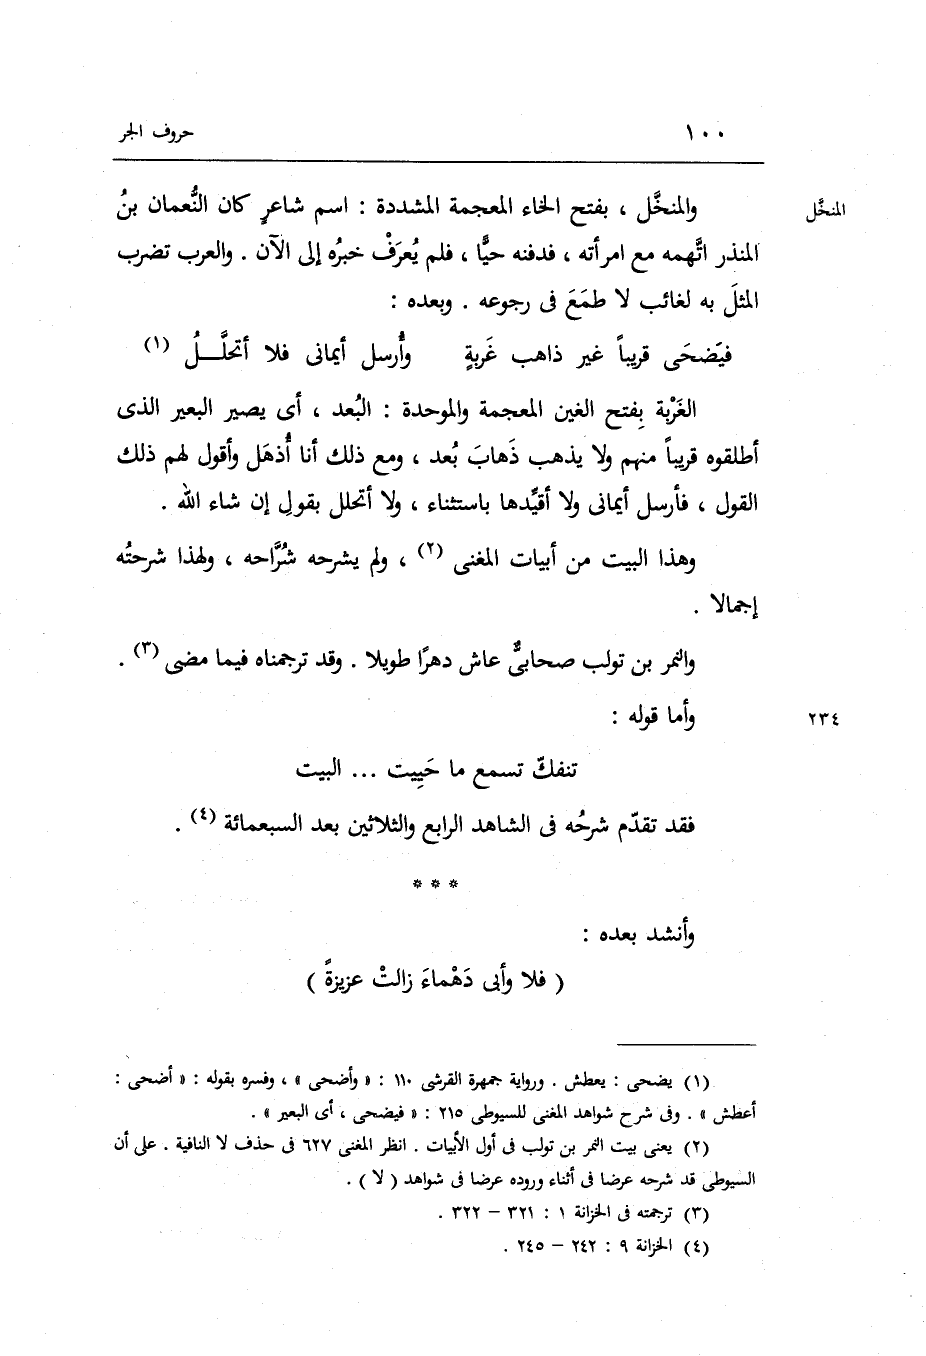 ١٠٠ حروف الجر
المنخَّل
والمنخَّل ، بفتح الخاء المعجمة المشددة : اسم شاعرٍ كان النُّعمان بنُ
المنذر اتَّهمه مع امرأته ، فدفنه حيًّا ، فلم يُعرَفْ خبرُه إلى الآن . والعرب تضرب
المثلَ به لغائب لا طمَعَ فى رجوعه . وبعده :
فيَضحَى قريباً غير ذاهب غَربةٍ وأُرسل أيمانى فلا أتحلَّــلُ (١)
الغَرْبة بِفتح الغين المعجمة والموحدة : البُعد ، أى يصير البعير الذى
أطلقوه قريباً منهم ولا يذهب ذَهابَ بُعد ، ومع ذلك أنا أُذهَل وأقول لهم ذلك
القول ، فأرسل أيمانى ولا أقيِّدها باستثناء ، ولا أتحلل بقولِ إن شاء الله .
وهذا البيت من أبيات المغنى (٢) ، ولم يشرحه شُرَّاحه ، ولهذا شرحتُه
إجمالا .
والنمر بن تولب صحابىٌّ عاش دهرًا طويلا . وقد ترجمناه فيما مضى (٣) .
٢٣٤
وأما قوله :
تنفكّ تسمع ما حَيِيت ... البيت
فقد تقدّم شرحُه فى الشاهد الرابع والثلاثين بعد السبعمائة (٤) .
* * *
وأنشد بعده :
( فلا وأبى دَهْماءَ زالتْ عزيزةً )
(١) يضحى : يعطش . ورواية جمهرة القرشى ١١٠ : « وأضحى » ، وفسره بقوله : « أضحى :
أعطش » . وفى شرح شواهد المغنى للسيوطى ٢١٥ : « فيضحى ، أى البعير » .
(٢) يعنى بيت النمر بن تولب فى أول الأبيات . انظر المغنى ٦٢٧ فى حذف لا النافية . على أن
السيوطى قد شرحه عرضا فى أثناء وروده عرضا فى شواهد ( لا ) .
(٣) ترجمته فى الخزانة ١ : ٣٢١ – ٣٢٢ .
(٤) الخزانة ٩ : ٢٤٢ – ٢٤٥ .